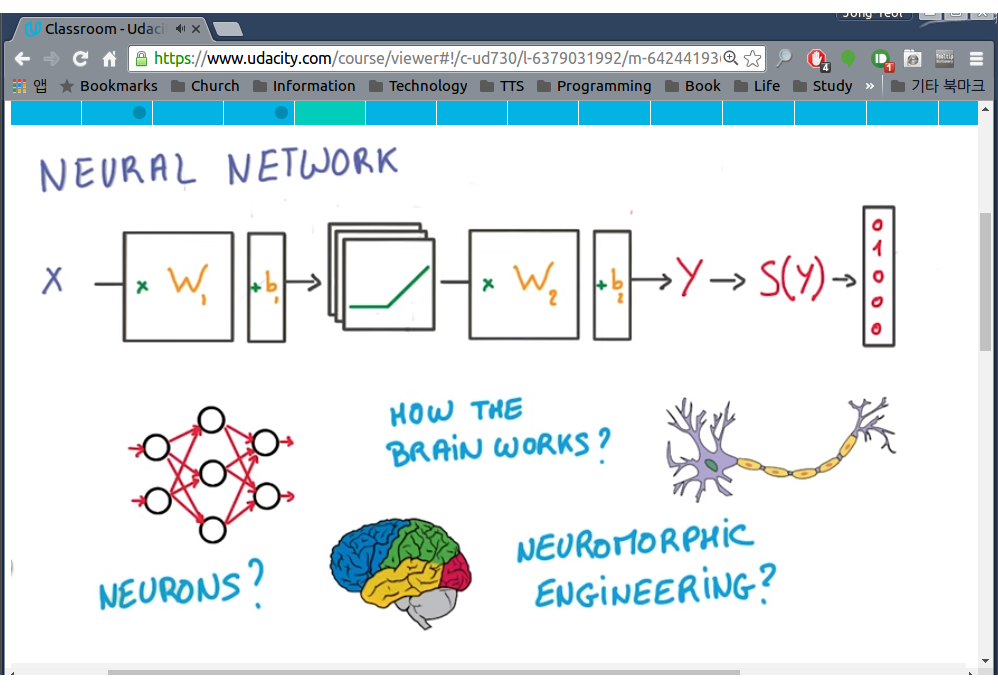 Jong Yeol
Classroom - Udaci
https://www.udacity.com/course/viewer#!/c-ud730/l-6379031992/m-64244193
4
1
앱 Bookmarks Church Information Technology TTS Programming Book Life Study » 기타 북마크
NEURAL NETWORK
X × W1 +b1 × W2 +b2 Y S(Y)
0
1
0
0
0
HOW THE
BRAIN WORKS?
NEURONS?
NEUROMORPHIC
ENGINEERING?